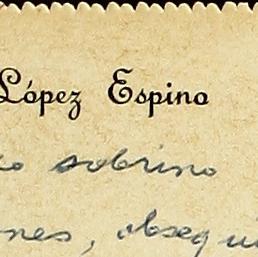 López Espino
sobrino
nes, obsequi